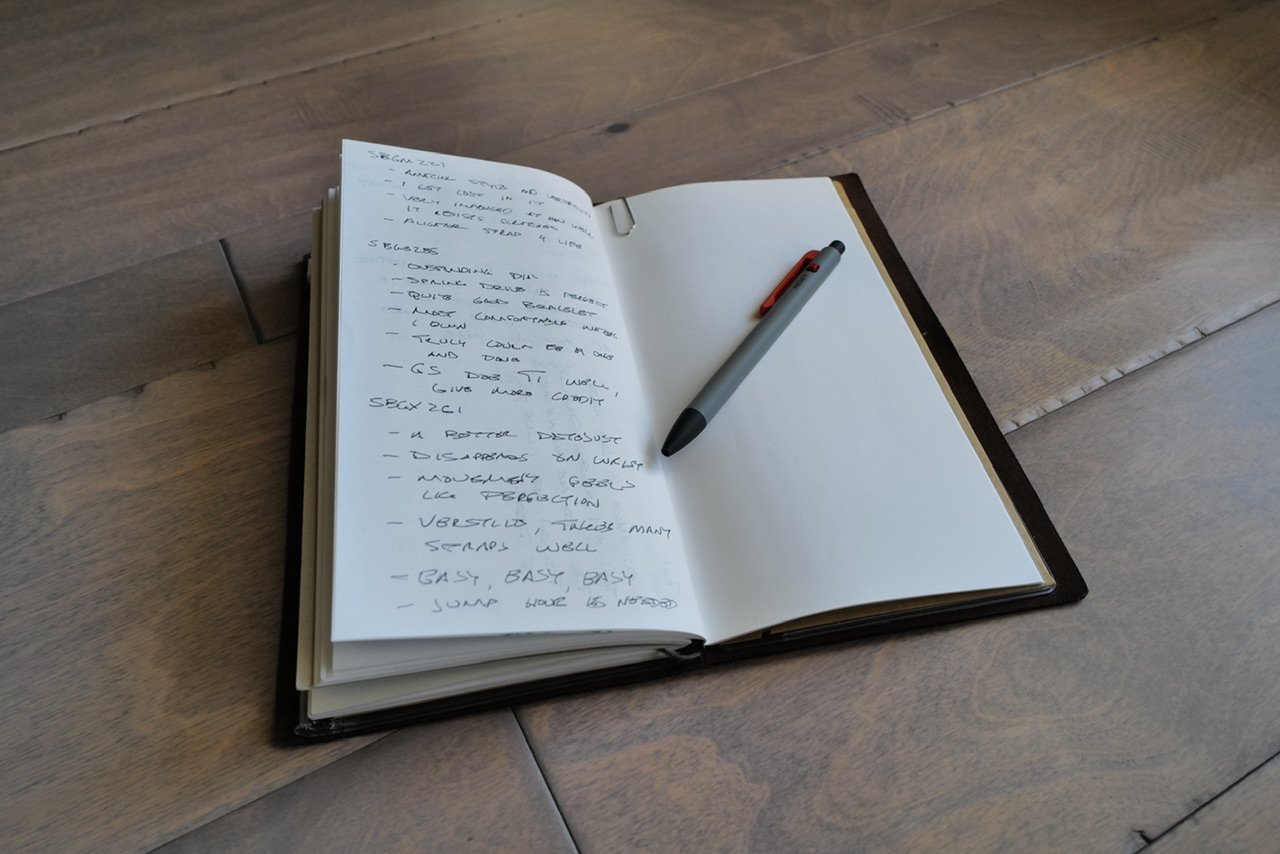 SBGM221
- AMAZING STYLE AND VERSATILITY
- I GET LOST IN IT
- VERY IMPRESSED AT HOW WELL
IT RESISTS SCRATCHES
- ALIGATOR STRAP 4 LIFE
SBGB285
- DIAL
- SPRING DRIVE IS PERFECT
- QUITE GOOD BRACELET
- MOST COMFORTABLE WATCH
I OWN
- TRULY COULD BE A ONE
AND DONE
- GS DOES TI WELL,
GIVE MORE CREDIT
SBGX261
- A BETTER DATEJUST
- DISAPPEARS ON WRIST
- MOVEMENT FEELS
LIKE PERFECTION
- , TAKES MANY
STRAPS WELL
- EASY, EASY, EASY
- JUMP HOUR IS NEEDED